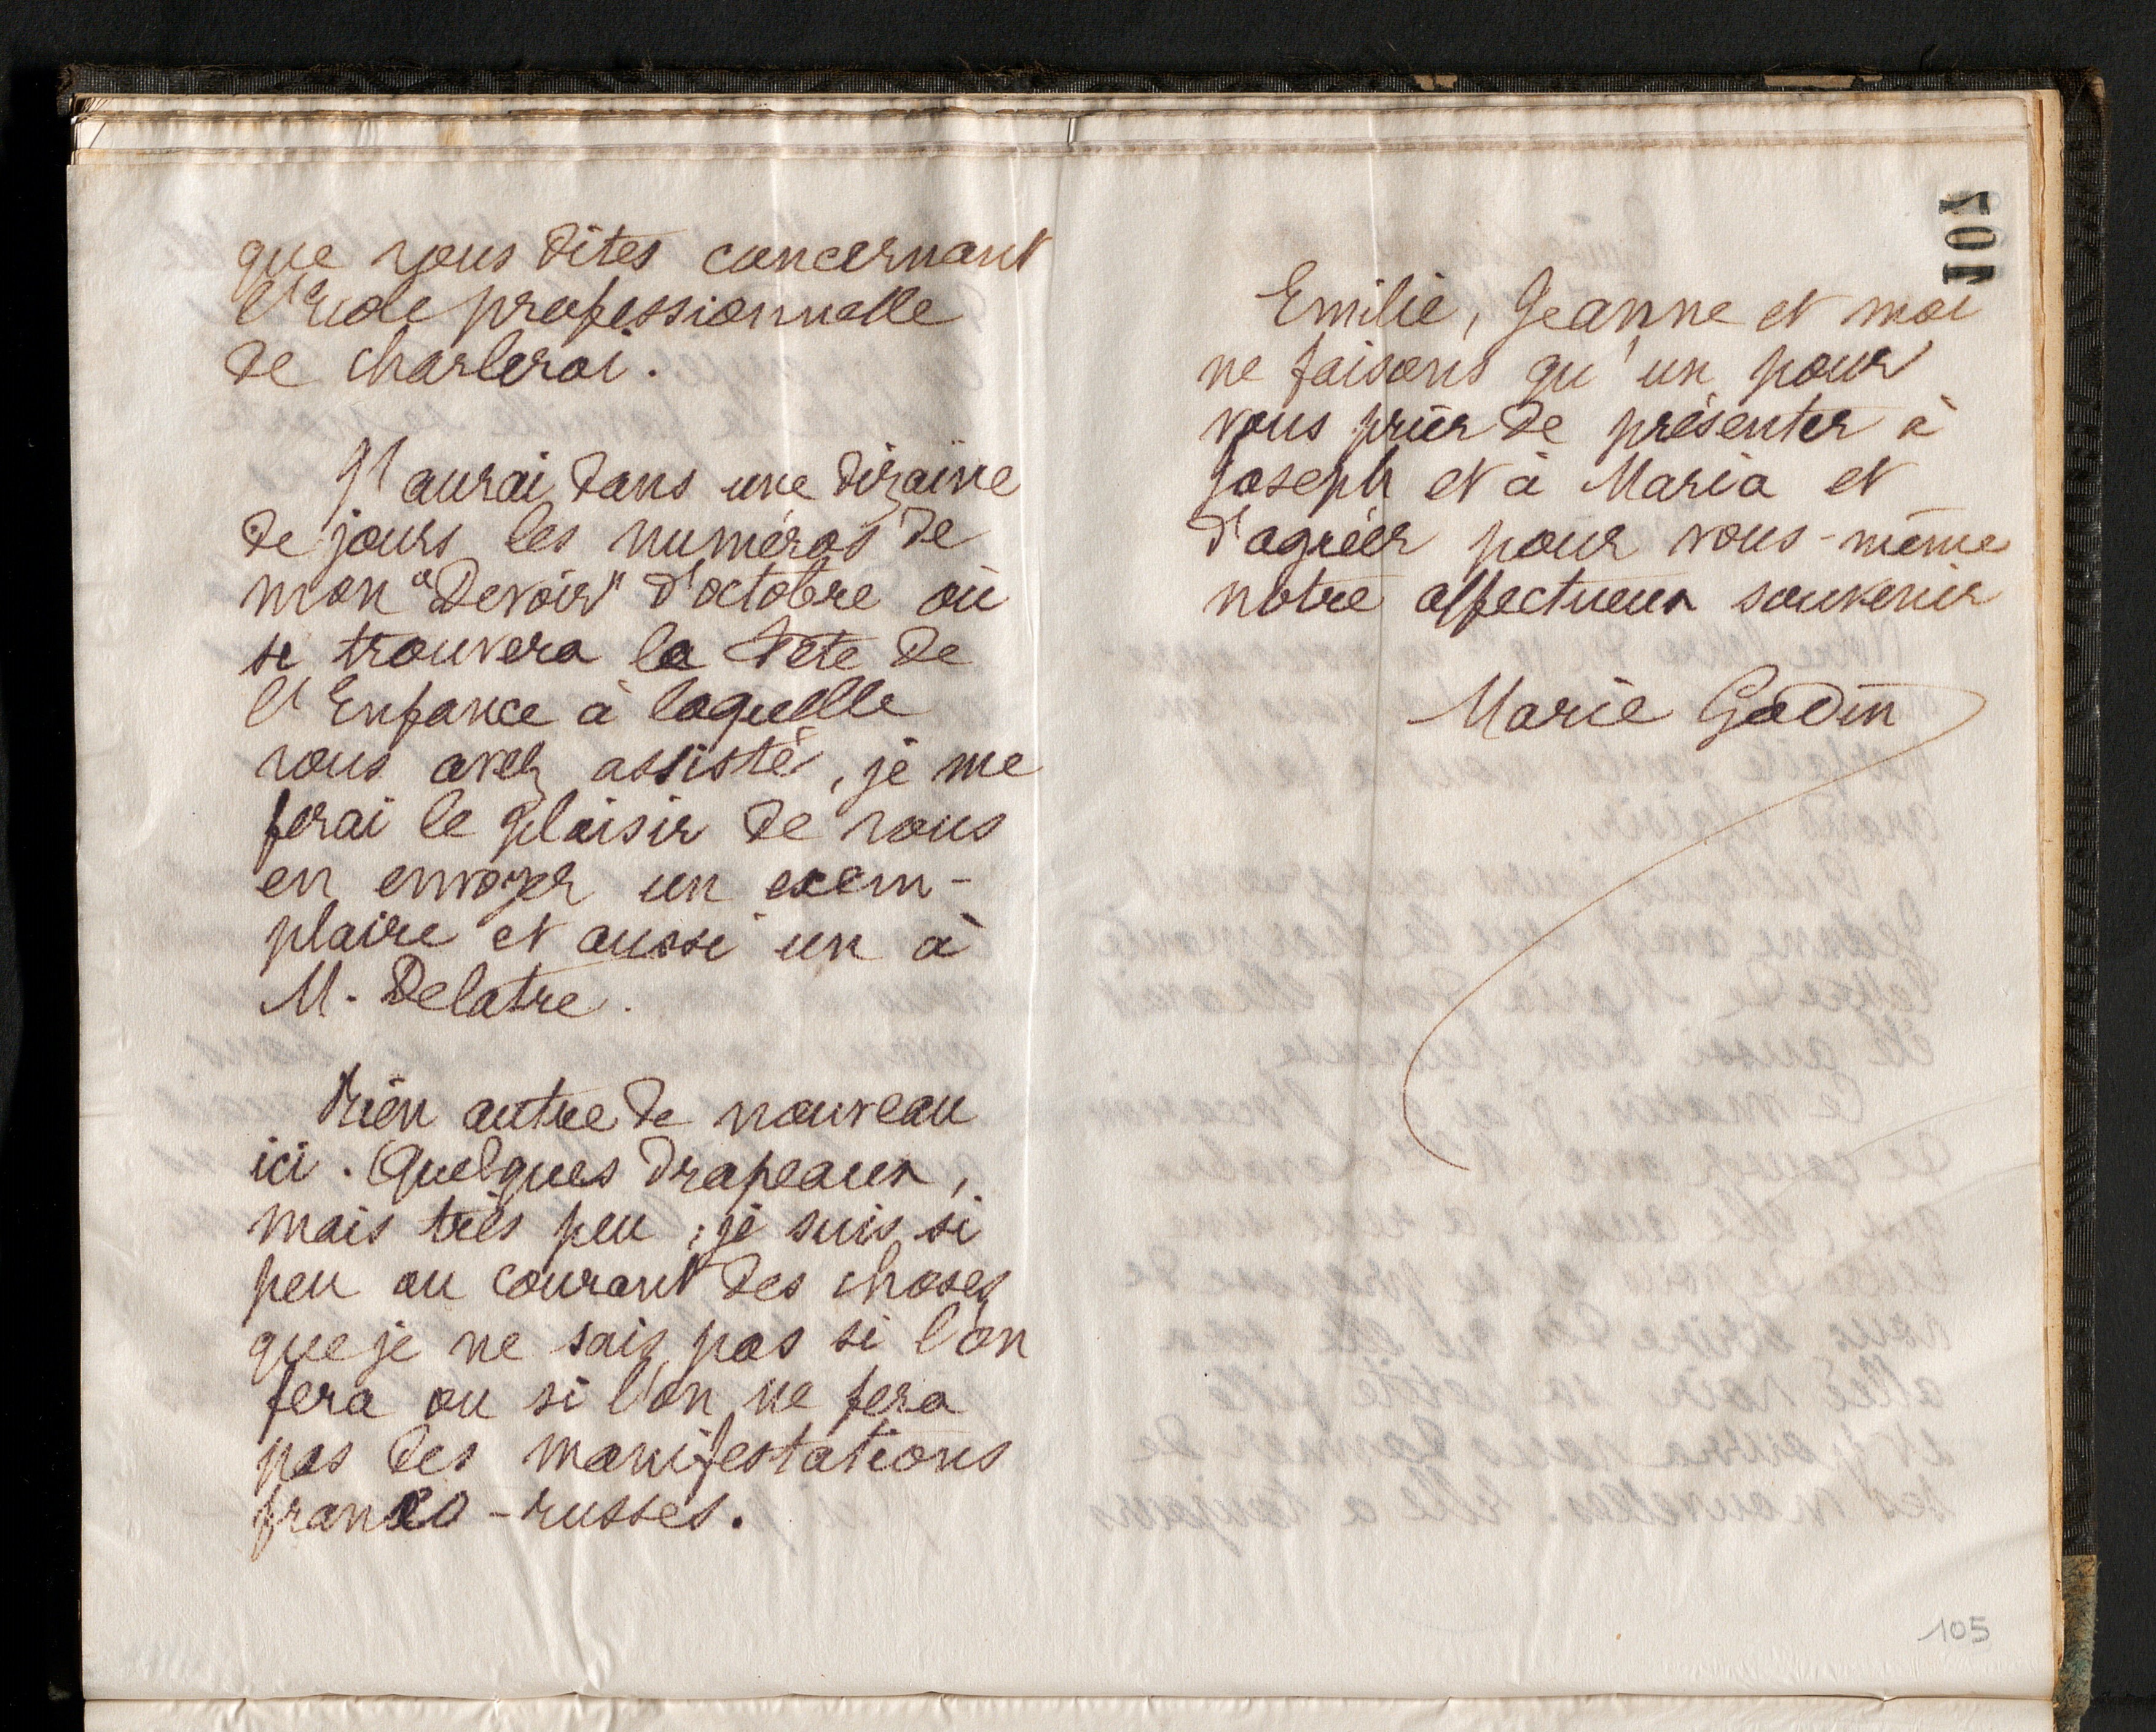 que vous dites concernant
l'école professionnelle
de charleroi.
J'aurai dans une dizaine
de jours les numéros de
mon "Devoir" d'octobre où
se trouvera la Fête de
l'Enfance à laquelle
vous avez assisté, je me
ferai le plaisir de vous
en envoyer un exem-
plaire et aussi un à
M. Delatre.
Rien autre de nouveau
ici. Quelques drapeaux,
mais très peu ; je suis si
peu au courant des choses
que je ne sais pas si l'on
fera ou si l'on ne fera
pas des manifestations
franco-russes.
101
Emilie, Jeanne et moi
ne faisons qu'un pour
vous prier de présenter à
Joseph et à Maria et
d'agréer pour vous-même
notre affectueux souvenir
Marie Godin
105